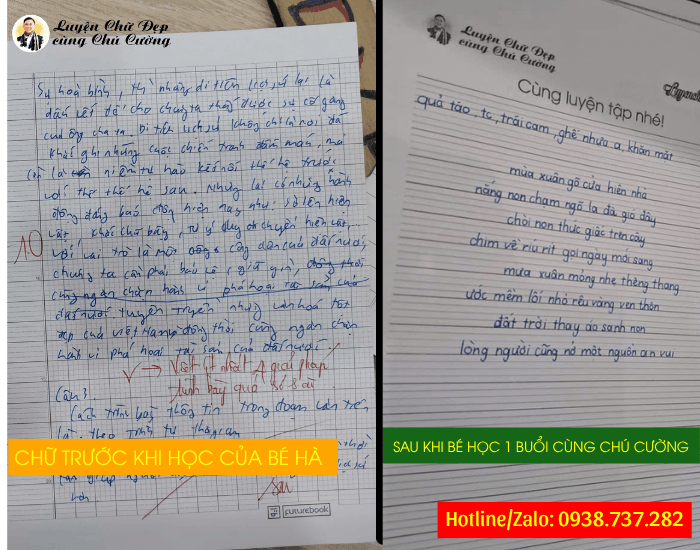 Luyện Chữ Đẹp
cùng Chú Cường
Sự hoà bình, thì những di tích lịch sử lại là
dấu vết để cho chúng ta thấy được sự cố gắng
của ông cha ta. Di tích lịch sử không chỉ là nơi để
khắc ghi những cuộc chiến tranh đẫm máu, mà
còn là niềm tự hào kết nối thế hệ trước
với thế hệ sau. Nhưng lại có những hành
động đáng báo động hiện nay như: sờ lên hiện
vật, khắc chữ bằng, tự ý di chuyển hiện vật,...
với vai trò là một công dân của đất nước,
chúng ta cần phải bảo vệ, giữ gìn, đồng thời
cùng ngăn chặn hành vi phá hoại tài sản của
đất nước tuyên truyền những văn hoá tốt
đẹp của Việt Nam đồng thời cùng ngăn chặn
hành vi phá hoại tài sản của đất nước.
1.0
→ Viết ít nhất 4 giải pháp
trình bày quá
Câu 3.
Cách trình bày thông tin trong đoạn văn trên
là theo trình tự thời gian
Sai
futurebook
CHỮ TRƯỚC KHI HỌC CỦA BÉ HÀ
Luyện Chữ Đẹp
cùng Chú Cường
Cùng luyện tập nhé!
quả táo, tc, trái cam, ghế nhựa a, khăn mặt
mùa xuân gõ cửa hiên nhà
nắng non chạm ngõ la đà gió đây
chồi non thức giấc trên cây
chim về ríu rít gọi ngày mới sang
mưa xuân mỏng nhẹ thênh thang
ước mềm lối nhỏ rêu vàng ven thôn
đất trời thay áo xanh non
lòng người cũng nở một nguồn an vui
SAU KHI BÉ HỌC 1 BUỔI CÙNG CHÚ CƯỜNG
Hotline/Zalo: 0938.737.282